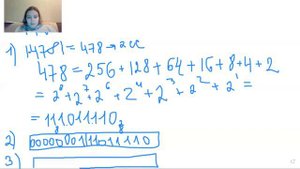 1) |478| = 478 → 2cc
478 = 256 + 128 + 64 + 16 + 8 + 4 + 2
= 2⁸ + 2⁷ + 2⁶ + 2⁴ + 2³ + 2² + 2¹ =
= 111011110₂
2) 0000000111011110
3)